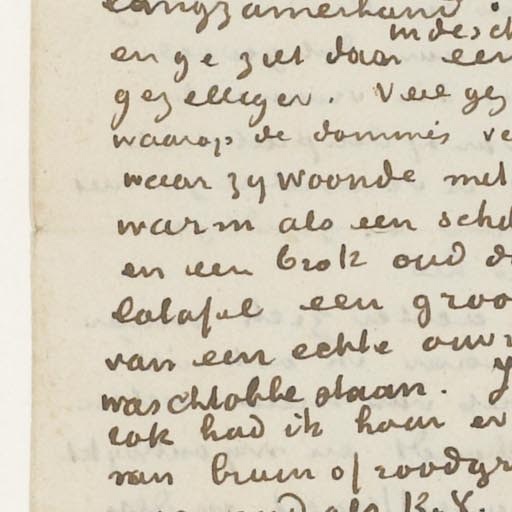 langzamerhand
indesch
en ge ziet daar een
gezelliger. Veel gez
waarop de dominés ve
waar zy woonde met
warm als een sche
en een brok oud d
eetafel een groo
van een echte ouv
waschtobbe staan.
rok had ik haar er
van bruin of roodgr